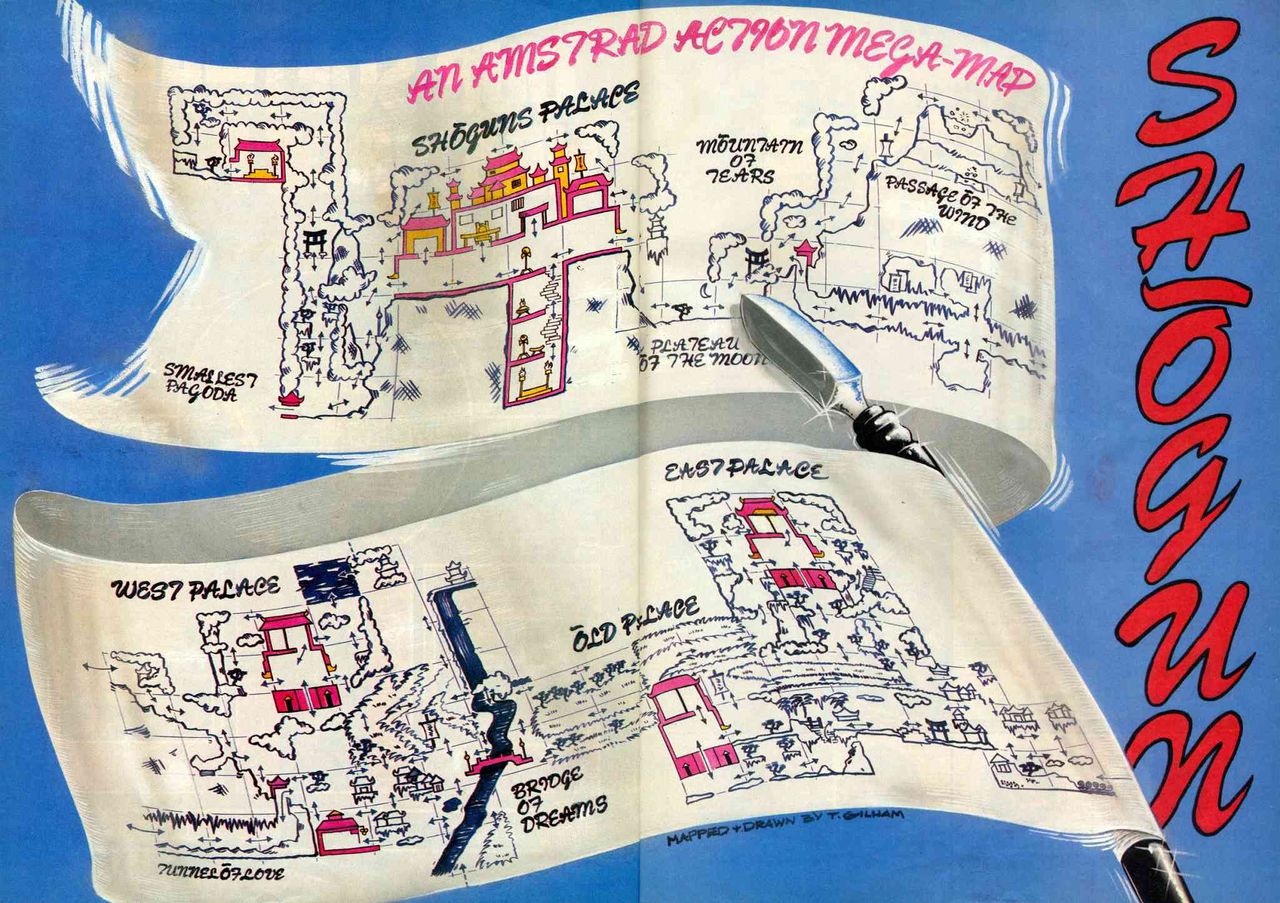 AN AMSTRAD ACTION MEGA-MAP
SHŌGUNS PALACE
MŌUNTAIN
OF
TEARS
PASSAGE ŌF THE
WIND
SMALLEST
PAGODA
PLATEAU
ŌF THE MOON
EAST PALACE
WEST PALACE
ŌLD PALACE
BRIDGE
OF
DREAMS
TUNNEL ŌF LOVE
MAPPED + DRAWN BY T. GILHAM
SHOGUN